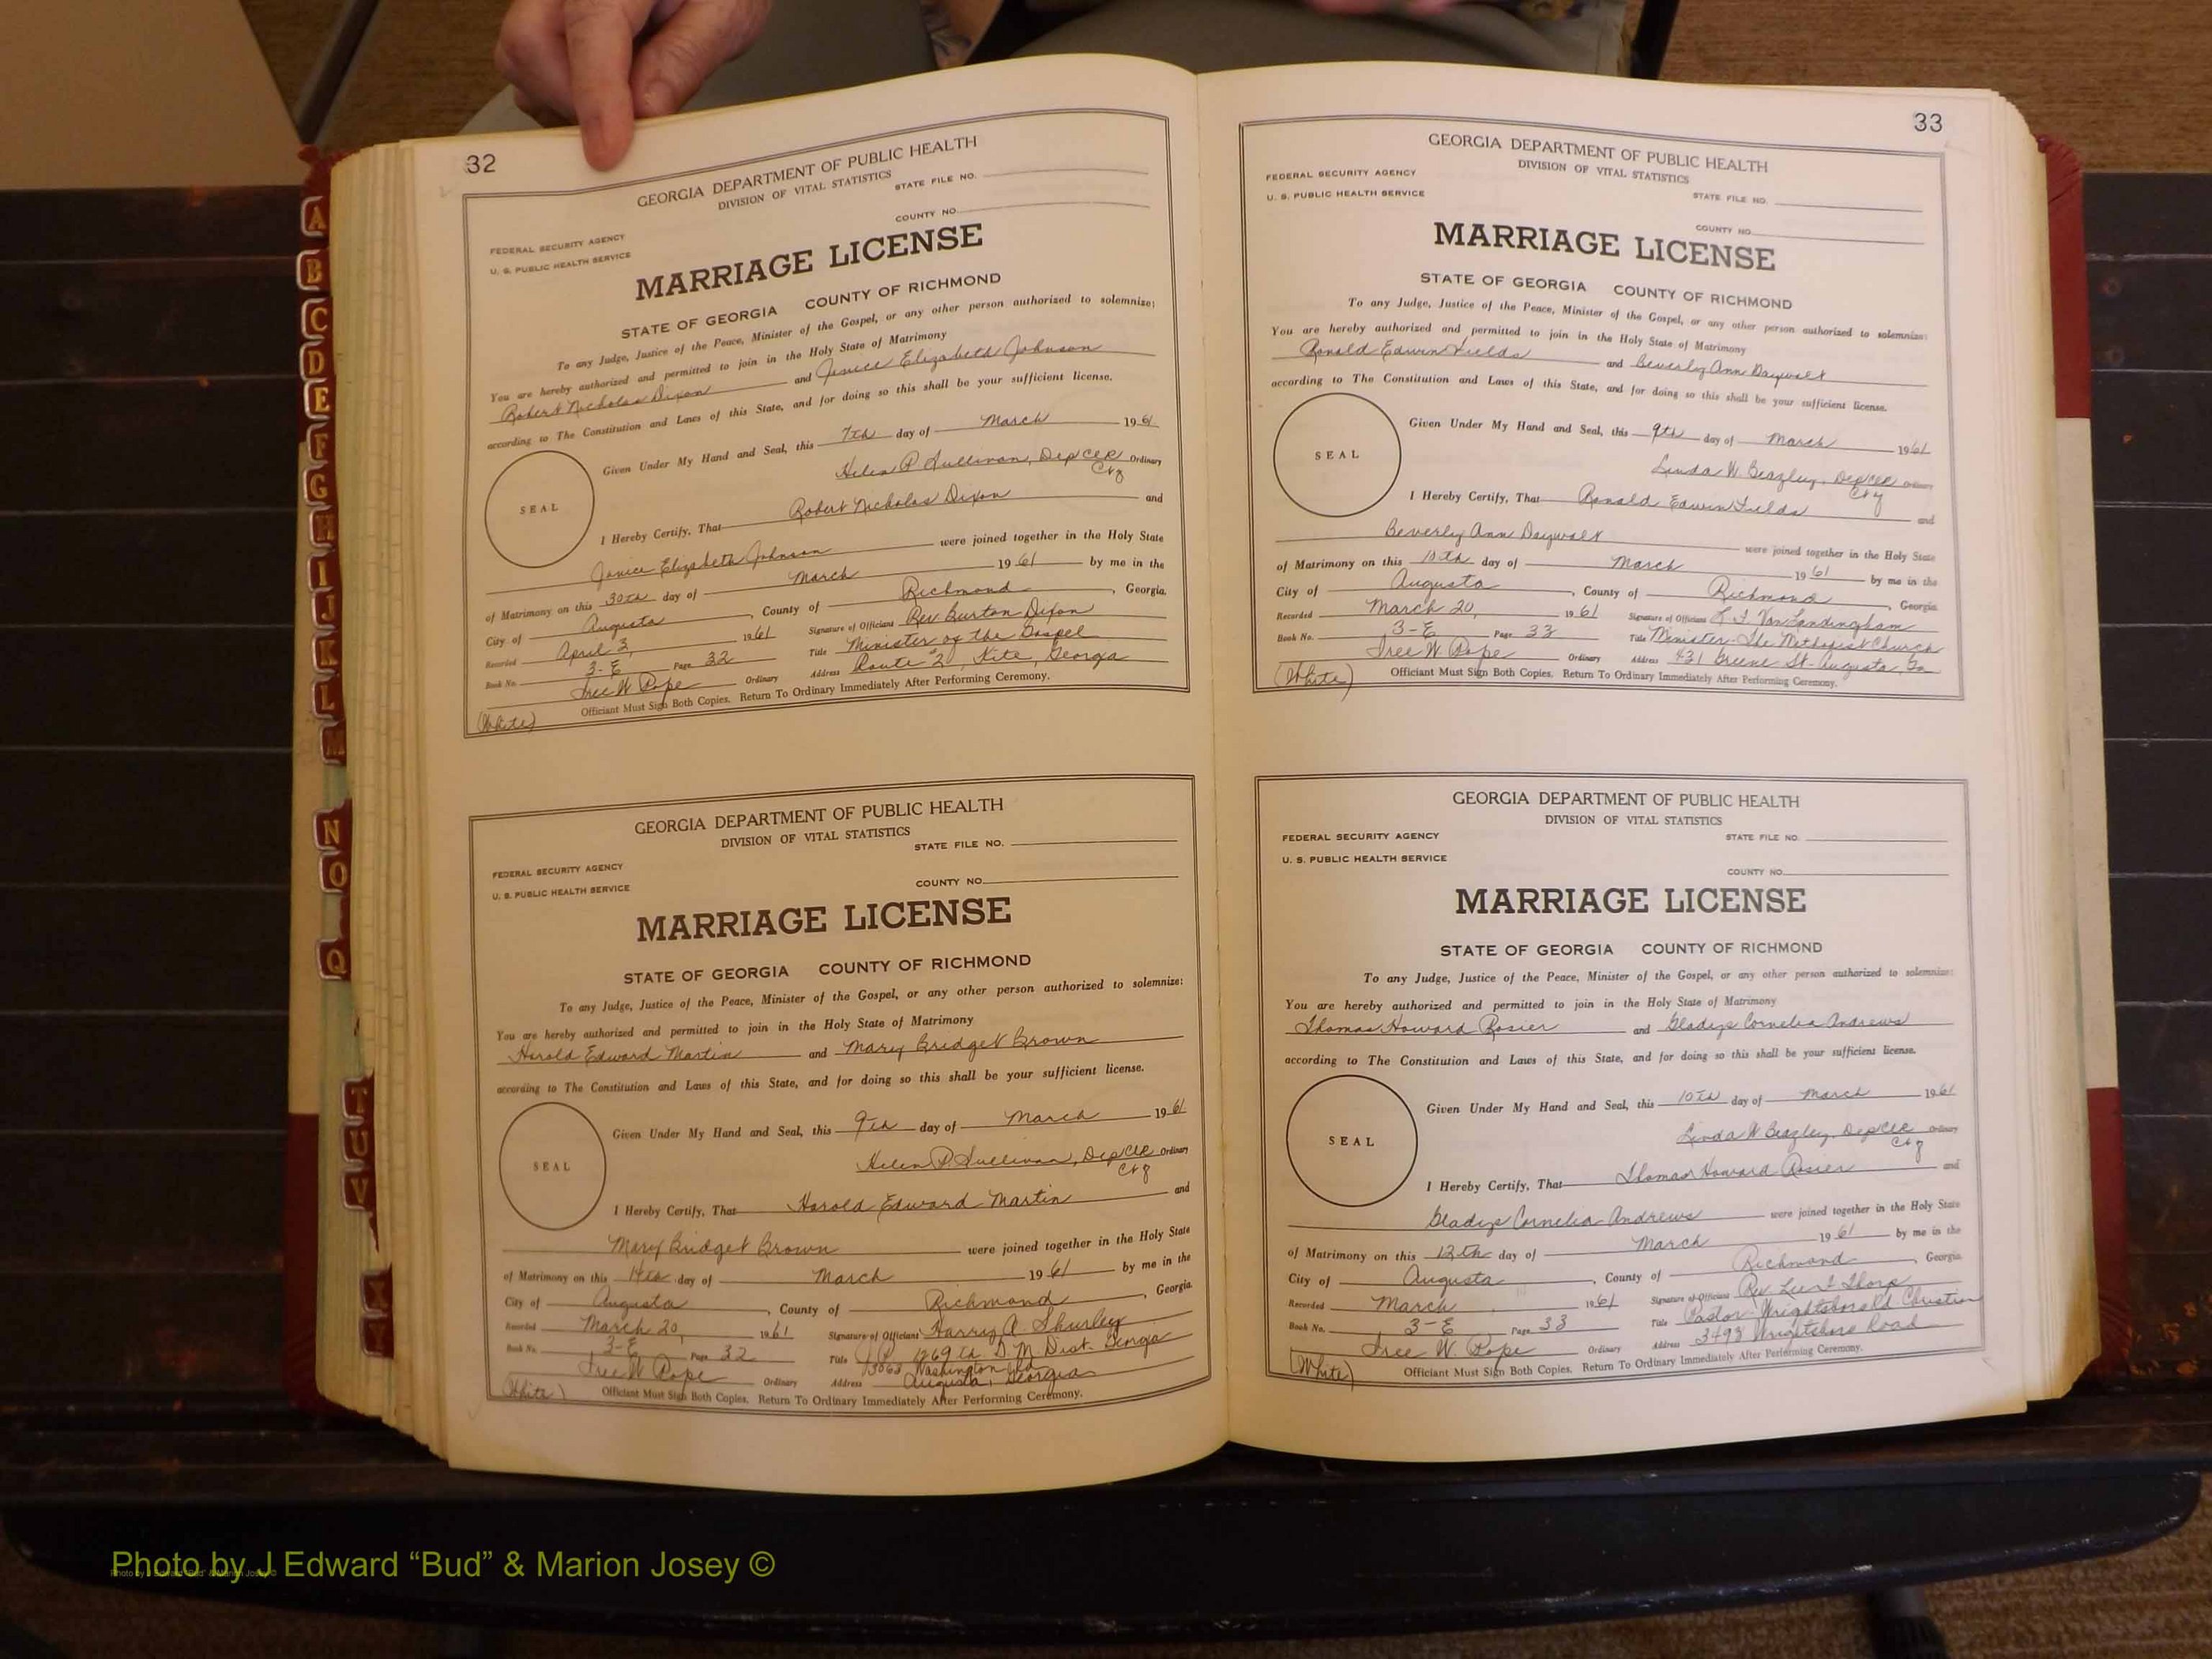 32
GEORGIA DEPARTMENT OF PUBLIC HEALTH
DIVISION OF VITAL STATISTICS
STATE FILE NO.
COUNTY NO.
FEDERAL SECURITY AGENCY
U. S. PUBLIC HEALTH SERVICE
MARRIAGE LICENSE
STATE OF GEORGIA COUNTY OF RICHMOND
To any Judge, Justice of the Peace, Minister of the Gospel, or any other person authorized to solemnize:
You are hereby authorized and permitted to join in the Holy State of Matrimony
Robert Nicholas Dixon and Janice Elizabeth Johnson
according to The Constitution and Laws of this State, and for doing so this shall be your sufficient license.
Given Under My Hand and Seal, this 7th day of March 1961
Helen P Sullivan, Dep Clk Ordinary
SEAL
I Hereby Certify, That Robert Nicholas Dixon and
Janice Elizabeth Johnson were joined together in the Holy State
of Matrimony on this 30th day of March 1961 by me in the
City of Augusta, County of Richmond, Georgia.
Recorded April 3, 1961 Signature of Officiant Rev Burton Dixon
Book No. 3-E Page 32 Title Minister of the Gospel
Tree W Pope Ordinary Address Route #2, Kite, Georgia
(White) Officiant Must Sign Both Copies. Return To Ordinary Immediately After Performing Ceremony.
GEORGIA DEPARTMENT OF PUBLIC HEALTH
DIVISION OF VITAL STATISTICS
STATE FILE NO.
FEDERAL SECURITY AGENCY
COUNTY NO.
U. S. PUBLIC HEALTH SERVICE
MARRIAGE LICENSE
STATE OF GEORGIA COUNTY OF RICHMOND
To any Judge, Justice of the Peace, Minister of the Gospel, or any other person authorized to solemnize:
You are hereby authorized and permitted to join in the Holy State of Matrimony
Harold Edward Martin and Mary Bridget Brown
according to The Constitution and Laws of this State, and for doing so this shall be your sufficient license.
Given Under My Hand and Seal, this 9th day of March 1961
Helen P Sullivan, Dep Clk Ordinary
SEAL
I Hereby Certify, That Harold Edward Martin and
Mary Bridget Brown were joined together in the Holy State
of Matrimony on this 14th day of March 1961 by me in the
City of Augusta, County of Richmond, Georgia.
Recorded March 20, 1961 Signature of Officiant Harry A Shurley
Book No. 3-E Page 32 Title J P 1269th G. M. Dist. Georgia
3063 Washington Rd
Tree W Pope Ordinary Address Augusta, Georgia
(White) Officiant Must Sign Both Copies. Return To Ordinary Immediately After Performing Ceremony.
33
GEORGIA DEPARTMENT OF PUBLIC HEALTH
DIVISION OF VITAL STATISTICS
FEDERAL SECURITY AGENCY
U. S. PUBLIC HEALTH SERVICE
STATE FILE NO.
COUNTY NO.
MARRIAGE LICENSE
STATE OF GEORGIA COUNTY OF RICHMOND
To any Judge, Justice of the Peace, Minister of the Gospel, or any other person authorized to solemnize:
You are hereby authorized and permitted to join in the Holy State of Matrimony
Ronald Edwin Fields and Beverly Ann Daywalt
according to The Constitution and Laws of this State, and for doing so this shall be your sufficient license.
Given Under My Hand and Seal, this 9th day of March 1961
Linda W. Beazley, Dep Clk Ordinary
SEAL
I Hereby Certify, That Ronald Edwin Fields and
Beverly Ann Daywalt were joined together in the Holy State
of Matrimony on this 10th day of March 1961 by me in the
City of Augusta, County of Richmond, Georgia.
Recorded March 20, 1961 Signature of Officiant Van Landingham
Book No. 3-E Page 33 Title Minister-The Methodist Church
Tree W Pope Ordinary Address 431 Greene St- Augusta, Ga
(White) Officiant Must Sign Both Copies. Return To Ordinary Immediately After Performing Ceremony.
GEORGIA DEPARTMENT OF PUBLIC HEALTH
DIVISION OF VITAL STATISTICS
FEDERAL SECURITY AGENCY
STATE FILE NO.
U. S. PUBLIC HEALTH SERVICE
COUNTY NO.
MARRIAGE LICENSE
STATE OF GEORGIA COUNTY OF RICHMOND
To any Judge, Justice of the Peace, Minister of the Gospel, or any other person authorized to solemnize:
You are hereby authorized and permitted to join in the Holy State of Matrimony
Thomas Howard Rosier and Gladys Cornelia Andrews
according to The Constitution and Laws of this State, and for doing so this shall be your sufficient license.
Given Under My Hand and Seal, this 10th day of March 1961
Linda W Beazley, Dep Clk Ordinary
SEAL
I Hereby Certify, That Thomas Howard Rosier and
Gladys Cornelia Andrews were joined together in the Holy State
of Matrimony on this 12th day of March 1961 by me in the
City of Augusta, County of Richmond, Georgia.
Recorded March 1961 Signature of Officiant Rev
Book No. 3-E Page 33 Title Pastor- Wrightsboro Rd Christian
Tree W. Pope Ordinary Address 3493 Wrightsboro Road
(White) Officiant Must Sign Both Copies. Return To Ordinary Immediately After Performing Ceremony.
A
B
C
D
E
F
G
H
I
J
K
L
M
N
O
Q
T
U
V
Photo by J Edward “Bud” & Marion Josey ©
Photo by J Edward “Bud” & Marion Josey ©